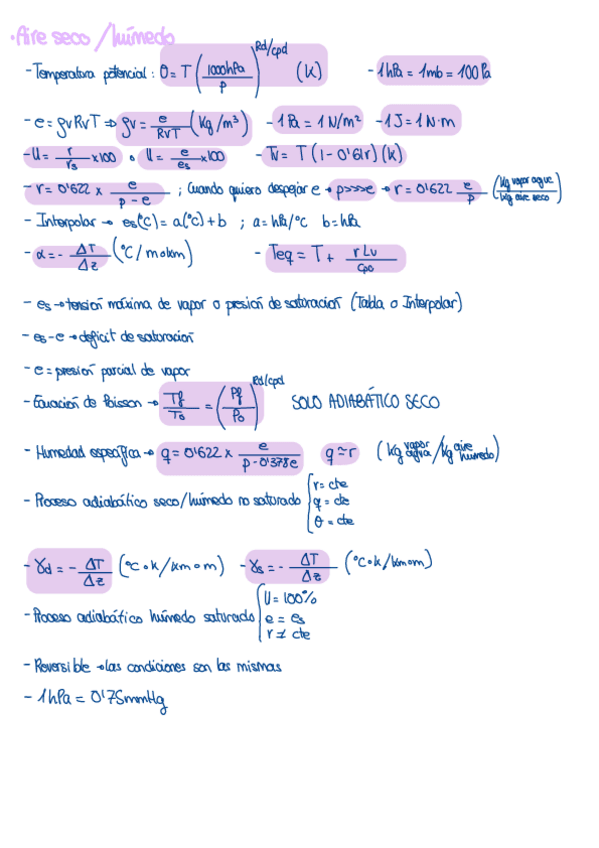 ·Aire seco/húmedo
- Temperatura potencial: θ = T (1000hPa / p)^Rd/cpd (K) - 1hPa = 1mb = 100Pa
- e = ρvRvT ⇒ ρv = e / RvT (Kg/m³) - 1Pa = 1N/m² - 1J = 1N·m
- U = r / rs x100 o U = e / es x100 - Tv = T(1-0'61r)(K)
- r = 0'622 x e / p-e ; Cuando quiero despejar e → p>>>e → r = 0'622 e / p (Kg vapor agua / Kg aire seco)
- Interpolar → es(°C) = a(°C)+b ; a = hPa/°C b = hPa
- α = - ΔT / Δz (°C/m o km) - Teq = T + rLv / cpd
- es → tensión máxima de vapor o presión de saturación (Tabla o Interpolar)
- es-e → déficit de saturación
- e = presión parcial de vapor
- Ecuación de Poisson → Tf / To = (Pf / Po)^Rd/cpd SOLO ADIABÁTICO SECO
- Humedad específica → q = 0'622 x e / p-0'378e q ≃ r (Kg vapor agua / Kg aire húmedo)
- Proceso adiabático seco/húmedo no saturado { r = cte
q = cte
θ = cte
- γd = - ΔT / Δz (°C o K/km o m) - γs = - ΔT / Δz (°C o K/km o m)
- Proceso adiabático húmedo saturado { U = 100%
e = es
r ≠ cte
- Reversible → las condiciones son las mismas
- 1hPa = 0'75mmHg